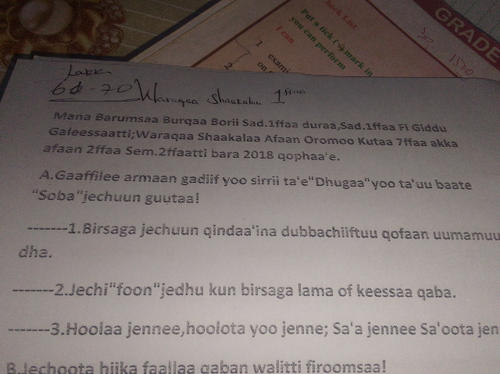 heck List
Put a tick (✓) mark in
you can perform
I can
GRADE
1 exami
2
Lakk
Waraqaa Shaakalaa 1ffaa
Mana Barumsaa Burqaa Borii Sad.1ffaa duraa,Sad.1ffaa Fi Giddu
Galeessaatti;Waraqaa Shaakalaa Afaan Oromoo Kutaa 7ffaa akka
afaan 2ffaa Sem.2ffaatti bara 2018 qophaa'e.
A.Gaaffilee armaan gadiif yoo sirrii ta'e"Dhugaa"yoo ta'uu baate
"Soba"jechuun guutaa!
-------1.Birsaga jechuun qindaa'ina dubbachiiftuu qofaan uumamuu
dha.
-------2.Jechi"foon"jedhu kun birsaga lama of keessaa qaba.
-------3.Hoolaa jennee,hoolota yoo jenne; Sa'a jennee Sa'oota jen
B.Jechoota hiika faallaa qaban walitti firoomsaa!